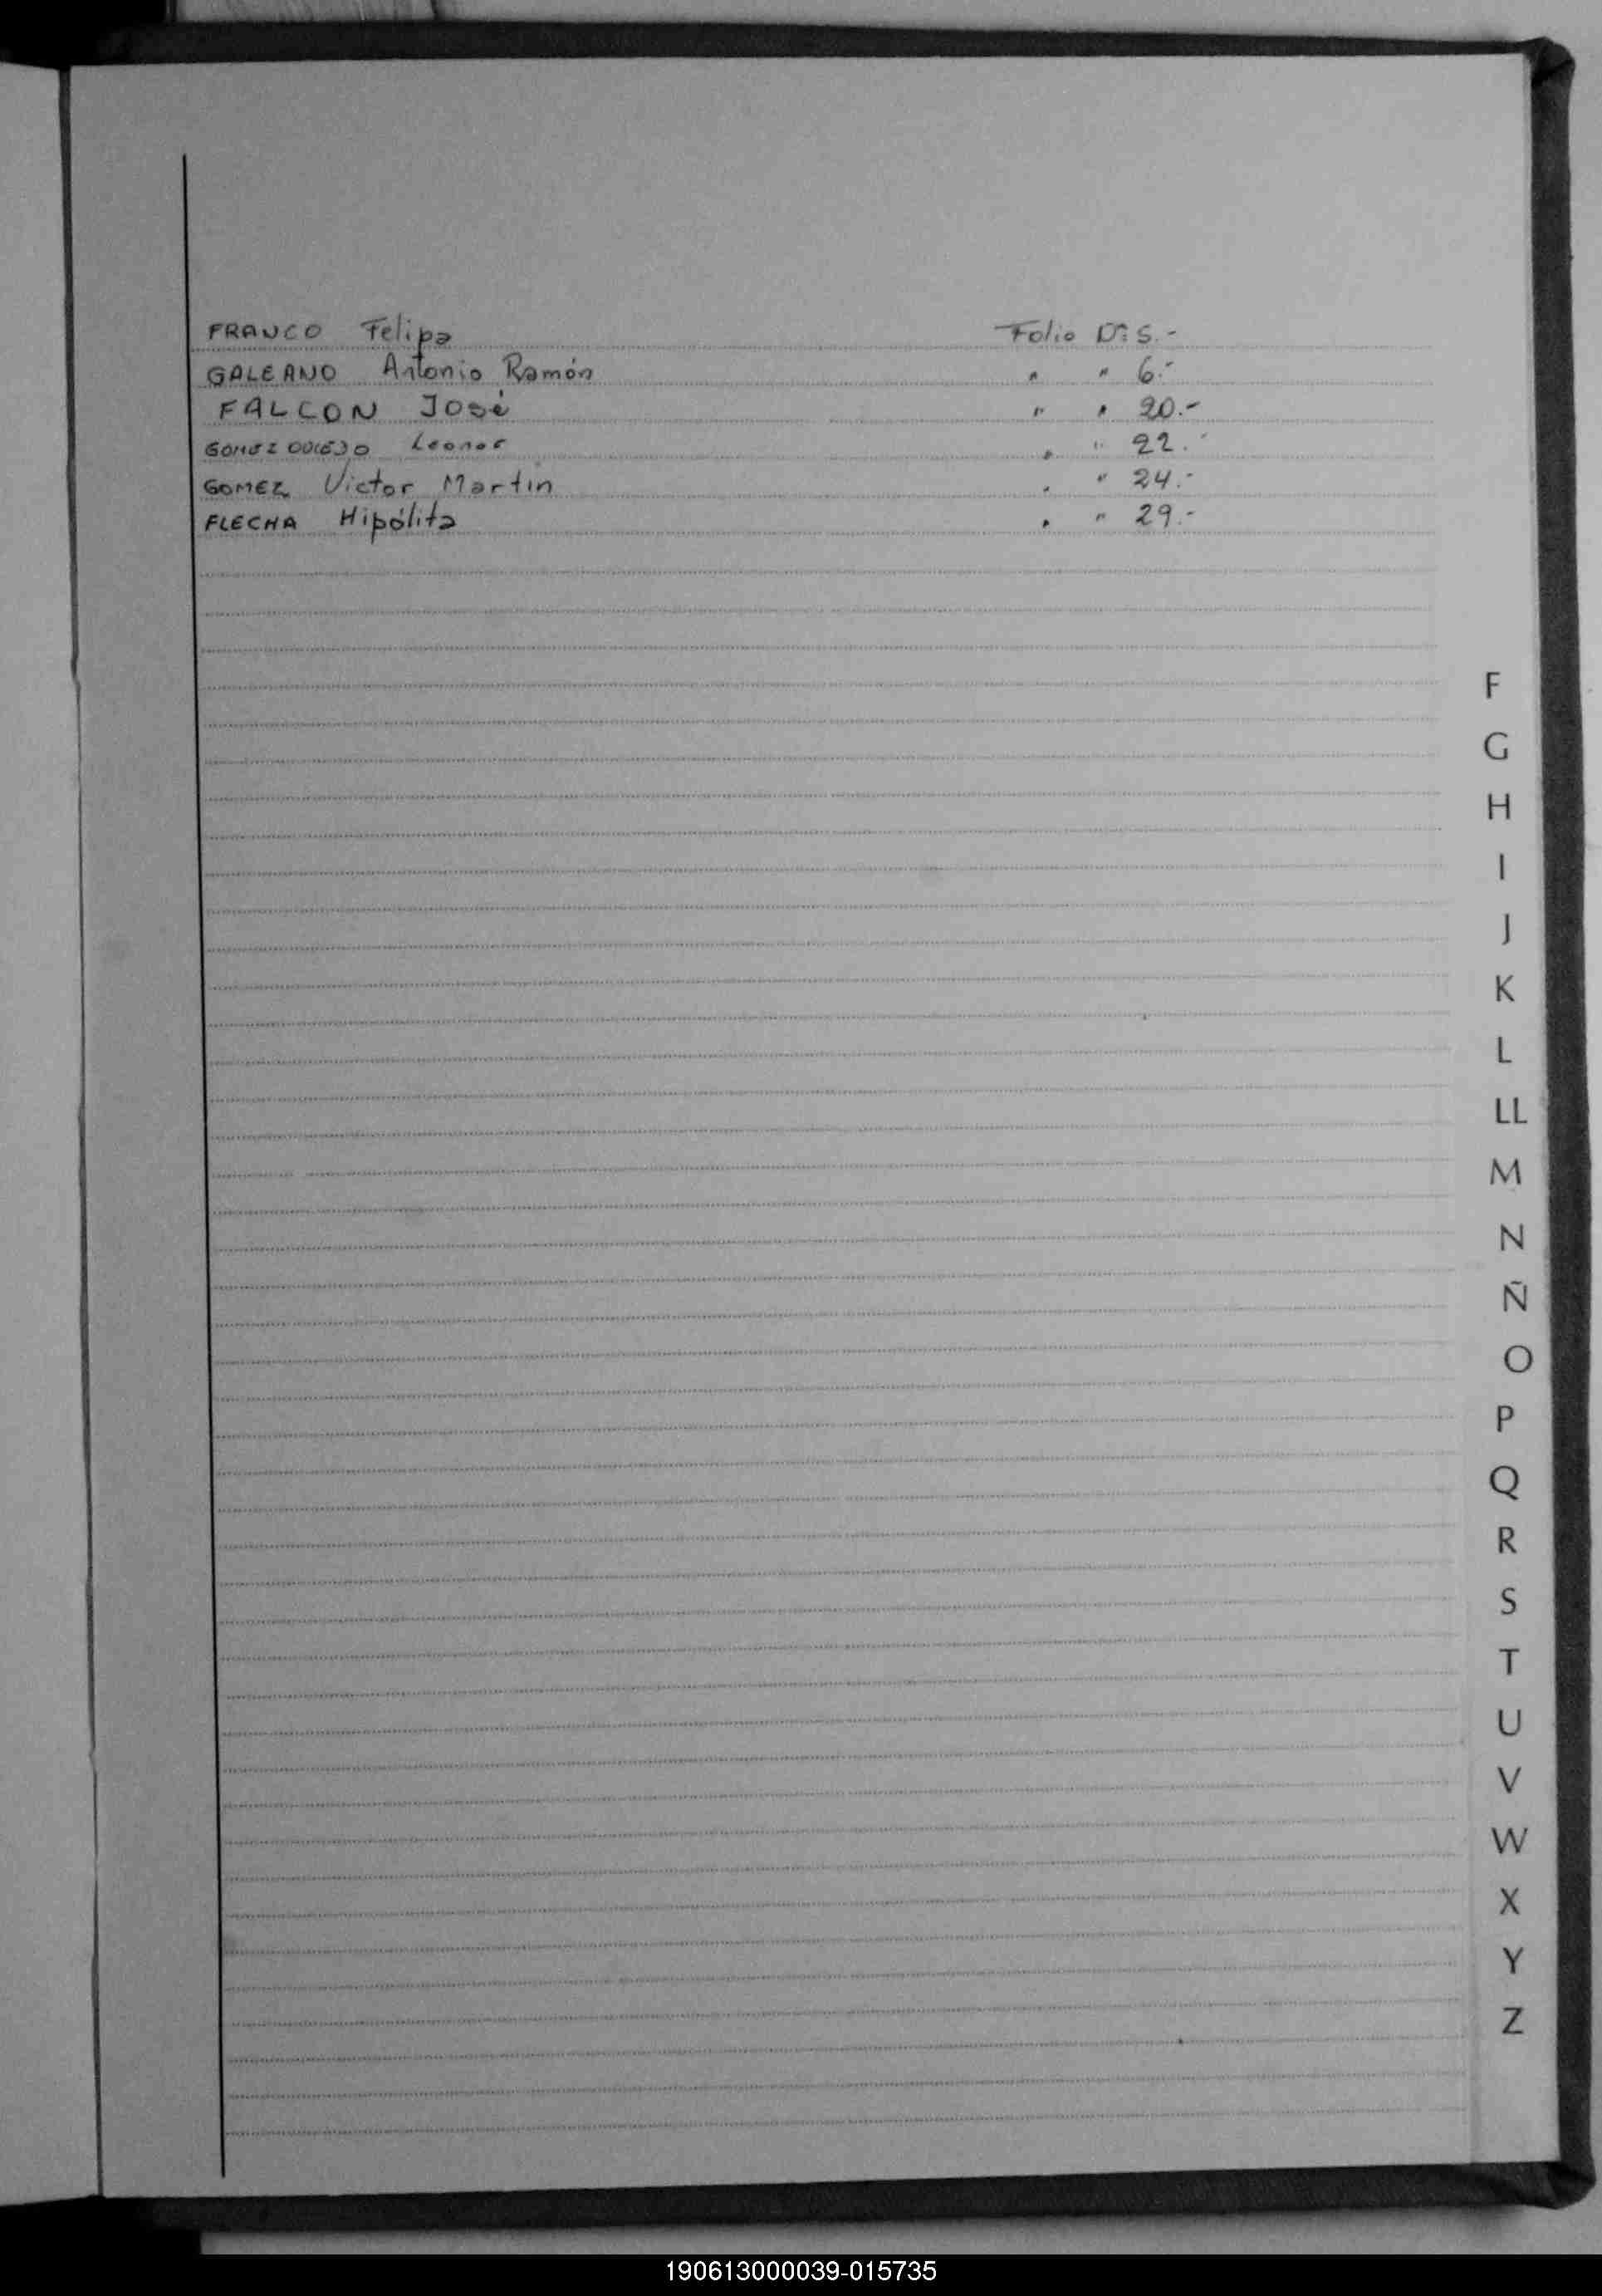 FRANCO Felipa Folio Nº 5.-
GALEANO Antonio Ramón " " 6.-
FALCON José " " 20.-
GOMEZ Leonor " " 22.-
GOMEZ Victor Martin " " 24.-
FLECHA Hipólita " " 29.-
F
G
H
I
J
K
L
LL
M
N
Ñ
O
P
Q
R
S
T
U
V
W
X
Y
Z
190613000039-015735